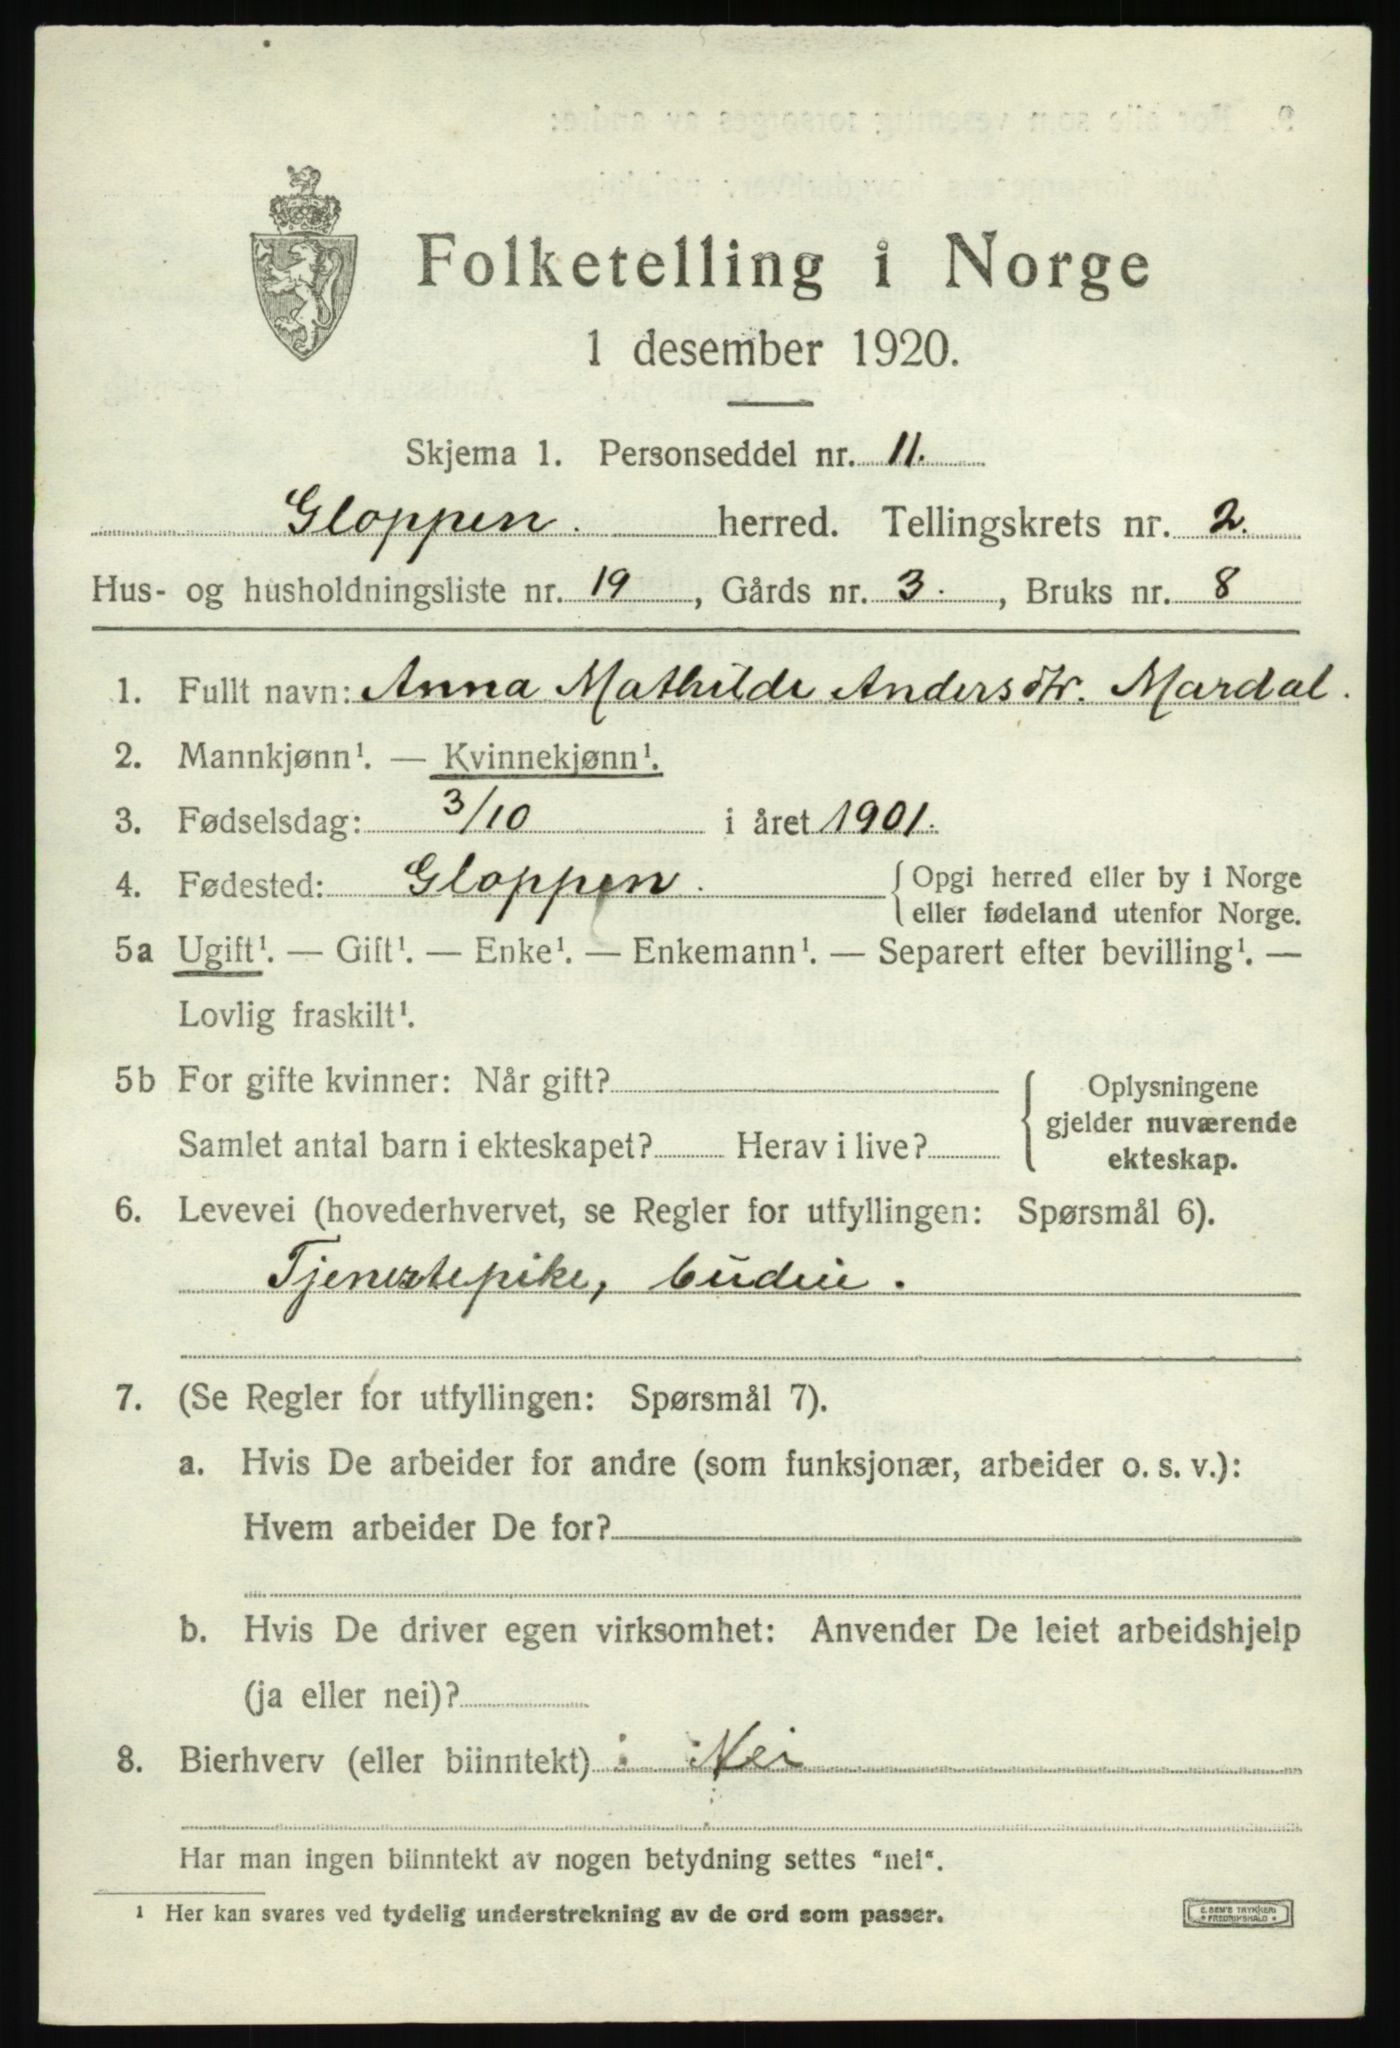 Folketelling i Norge
1 desember 1920.
Skjema 1. Personseddel nr. 11.
Gloppen. herred. Tellingskrets nr. 2.
Hus- og husholdningsliste nr. 19, Gårds nr. 3., Bruks nr. 8
1. Fullt navn: Anna Mathilde Andersdtr. Mardal.
2. Mannkjønn¹. — Kvinnekjønn¹.
3. Fødselsdag: 3/10 i året 1901.
4. Fødested: Gloppen. { Opgi herred eller by i Norge
eller fødeland utenfor Norge.
5a Ugift¹. — Gift¹. — Enke¹. — Enkemann¹. — Separert efter bevilling¹. —
Lovlig fraskilt¹.
5b For gifte kvinner: Når gift?
Samlet antal barn i ekteskapet? Herav i live?
{ Oplysningene
gjelder nuværende
ekteskap.
6. Levevei (hovederhvervet, se Regler for utfyllingen: Spørsmål 6).
Tjenestepike, budeie.
7. (Se Regler for utfyllingen: Spørsmål 7).
a. Hvis De arbeider for andre (som funksjonær, arbeider o. s. v.):
Hvem arbeider De for?
b. Hvis De driver egen virksomhet: Anvender De leiet arbeidshjelp
(ja eller nei)?
8. Bierhverv (eller biinntekt) : Nei
Har man ingen biinntekt av nogen betydning settes "nei".
¹ Her kan svares ved tydelig understrekning av de ord som passer.